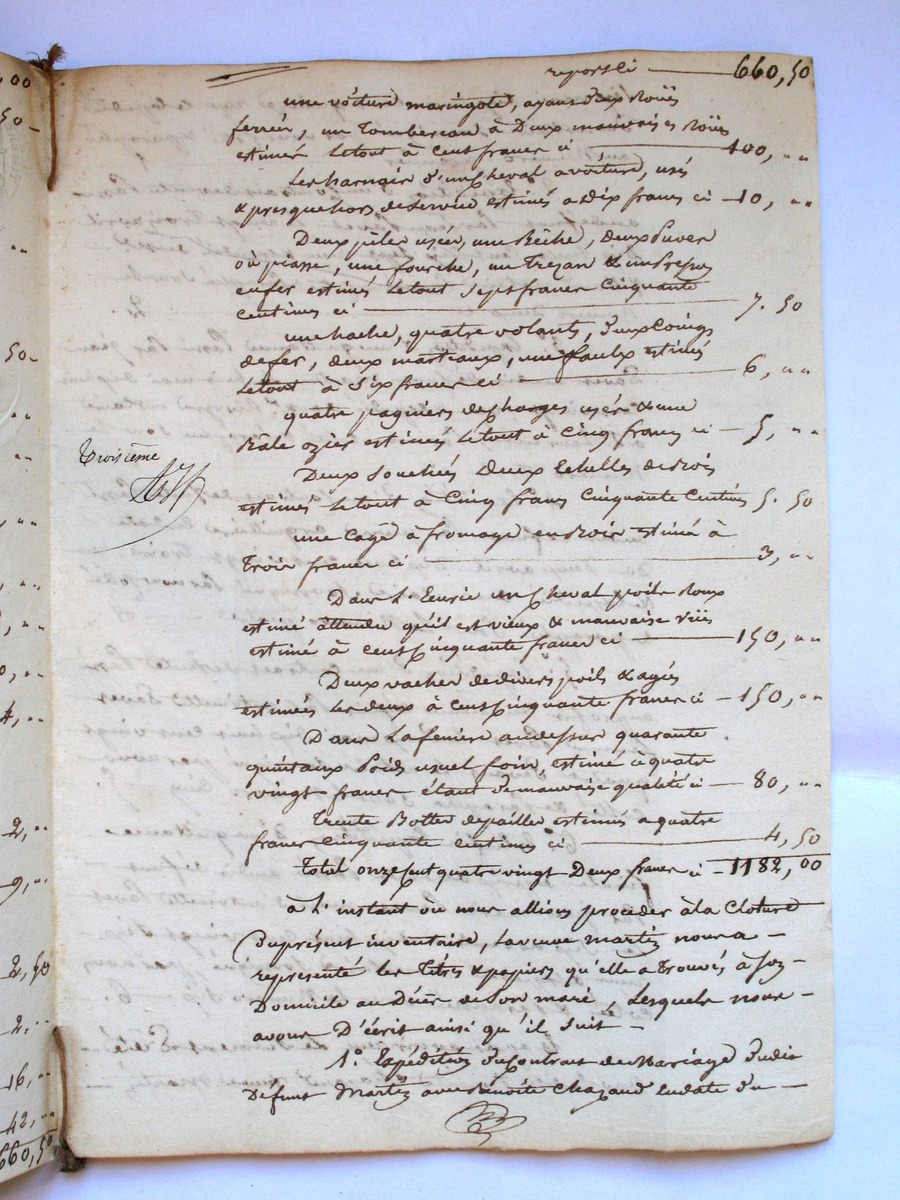 report ci 660,50
une voiture maringote, ayant deux Roües
ferrées, un Tombereau à Deux mauvaises Roües
estimés le tout à cent francs ci 100, ""
Les harnais d'un Cheval a voiture, usés
& presque hors de service estimés a dix francs ci 10, ""
Deux pèles usées, une Bêche, deux
ou piasse, une fourche, un Trezan & un
en fer estimés le tout sept francs Cinquante
centimes ci 7. 50
une hache, quatre volants, deux Coings
de fer, deux marteaux, une faulx estimés
le tout à Six francs ci 6, ""
quatre pagniers de charges usés & une
Bâle ozier estimés le tout à Cinq francs ci 5, ""
Troisième
Deux Deux Echelles de Bois
estimés le tout à Cinq francs Cinquante Centimes 5. 50
une Cage à fromage en Bois estimé à
Trois francs ci 3, ""
Dans l'Ecurie un Cheval poils Roux
estimé attendu qu'il est vieux & mauvaise
estimé à cent Cinquante francs ci 150, ""
Deux vaches de divers poils & agés
estimées les deux à cent Cinquante francs ci 150, ""
Dans La feniere au dessus quarante
quintaux Poids usuel foin, estimé à quatre
vingt francs étant de mauvaise qualité ci 80, ""
Trente Bottes de pailles estimés a quatre
francs Cinquante centimes ci 4, 50
Total onze Cent quatre vingt Deux francs ci 1182,00
à l'instant où nous allions proceder à la Cloture
Du présent inventaire, la veuve martin nous a
representé les Titres & papiers qu'elle a Trouvés à Son
Domicile au Décès de Son mari, Lesquels nous
avons D'écrit ainsi qu'il Suit
1.° Expédition du Contrat de Mariage dudit
Défunt Martin avec Benoite Chazaud en date du
,00
50
50
4, ""
2, ""
9, ""
2, 50
2, ""
16, ""
42, ""
660,50